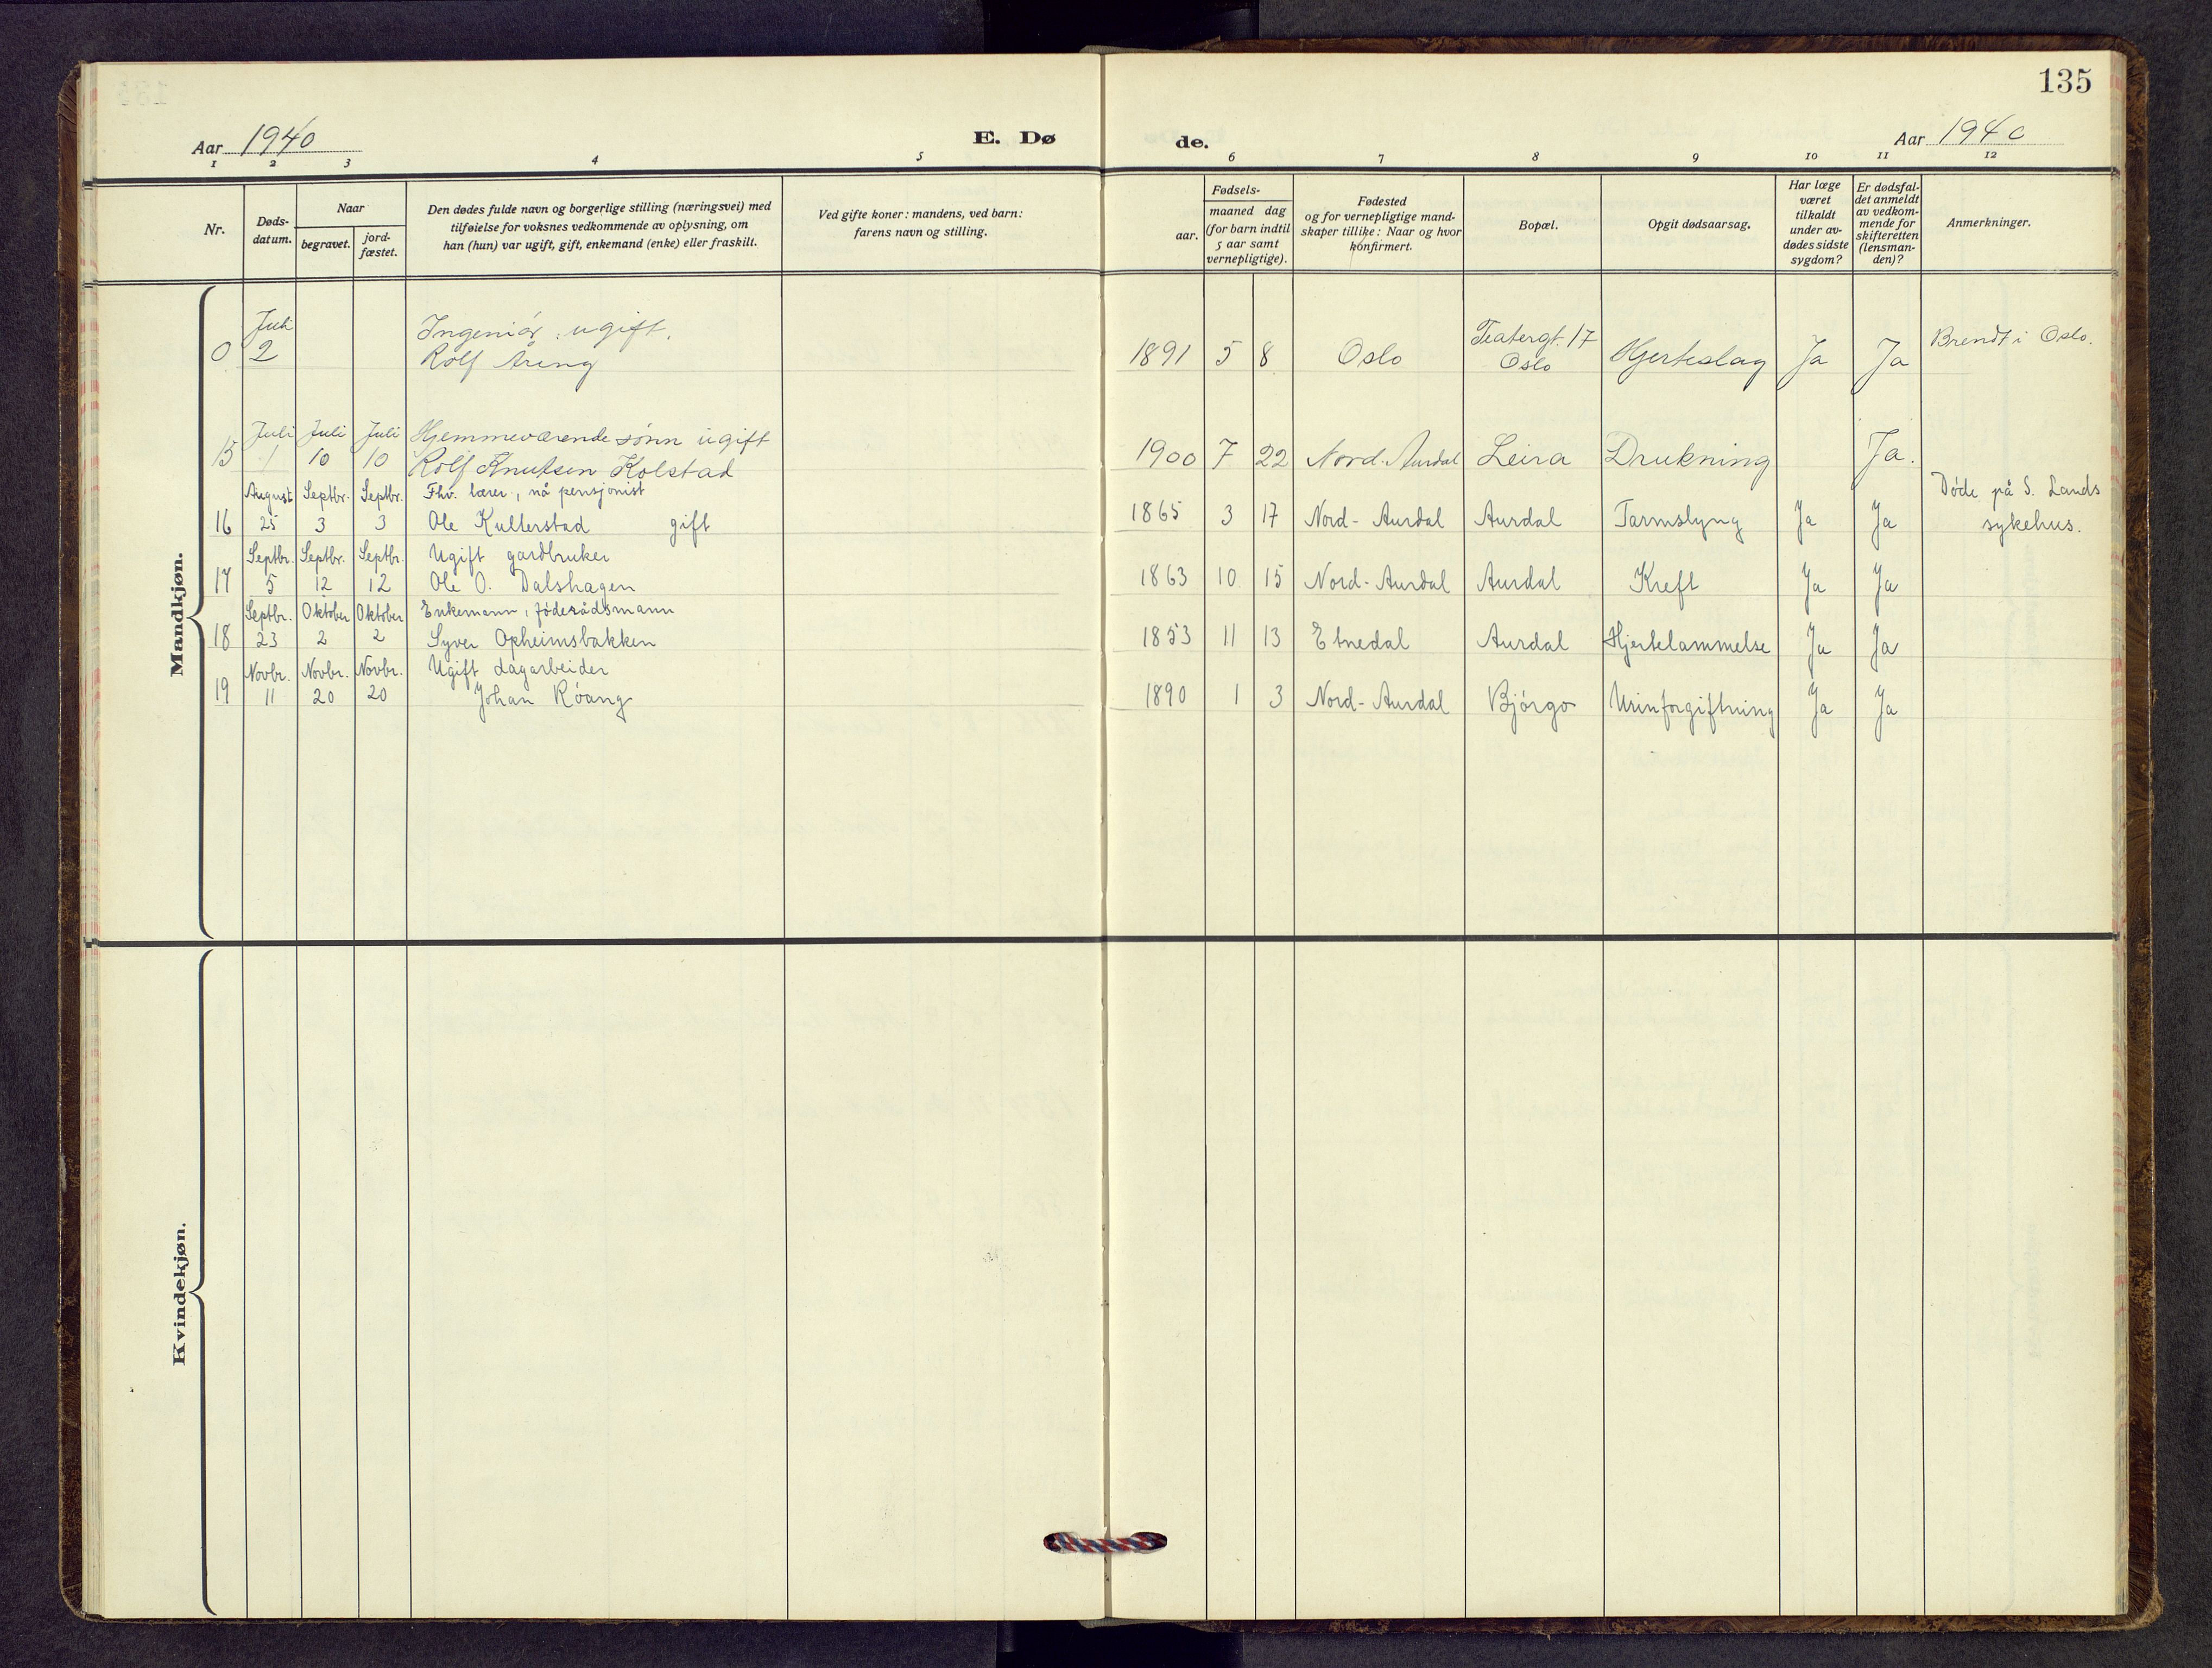 135
Aar 1940
E. Dø
de.
Aar 1940
1 2 3 4 5 6 7 8 9 10 11 12
Nr.
Døds-
datum.
Naar
begravet.
jord-
fæstet.
Den dødes fulde navn og borgerlige stilling (næringsvei) med
tilføielse for voksnes vedkommende av oplysning, om
han (hun) var ugift, gift, enkemand (enke) eller fraskilt.
Ved gifte koner: mandens, ved barn:
farens navn og stilling.
Fødsels-
aar.
maaned dag
(for barn indtil
5 aar samt
vernepligtige).
Fødested
og for vernepligtige mand-
skaper tillike: Naar og hvor
konfirmert.
Bopæl.
Opgit dødsaarsag.
Har læge
været
tilkaldt
under av-
dødes sidste
sygdom?
Er dødsfal-
det anmeldt
av vedkom-
mende for
skifteretten
(lensman-
den)?
Anmerkninger.
Mandkjøn.
Juli Ingeniør, ugift. Teatergt. 17 Brendt i Oslo.
0 2 Rolf Åreng 1891 5 8 Oslo Oslo Hjerteslag Ja Ja
Juli Juli Juli Hjemmeværende sønn ugift
15 1 10 10 Rolf Knutsen Kolstad 1900 7 22 Nord-Aurdal Leira Drukning Ja.
August Septbr. Septbr. Fhv. lærer, nå pensjonist Døde på S. Lands
16 25 3 3 Ole Kulterstad gift 1865 3 17 Nord-Aurdal Aurdal Tarmslyng Ja Ja sykehus.
Septbr. Septbr. Septbr. Ugift gardbruker
17 5 12 12 Ole O. Dalshagen 1863 10 15 Nord-Aurdal Aurdal Kreft Ja Ja
Septbr. Oktober Oktober Enkemann, føderådsmann
18 23 2 2 Syver Opheimsbakken 1853 11 13 Etnedal Aurdal Hjertelammelse Ja Ja
Novbr. Novbr. Novbr. Ugift dagarbeider
19 11 20 20 Johan Røang 1890 1 3 Nord-Aurdal Bjørgo Urinforgiftning Ja Ja
Kvindekjøn.